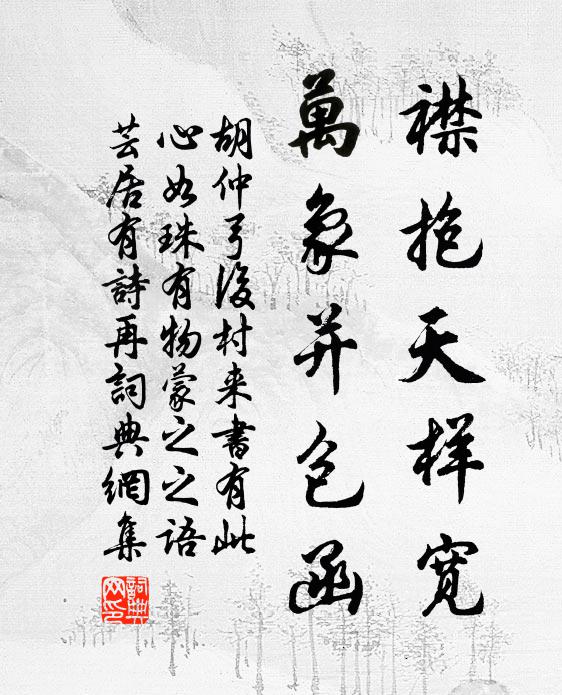 襟抱天样宽
萬象并包函
胡仲弓後村来書有此
心如珠有物蒙之之語
芸居有詩再詞典網集
詞典网印